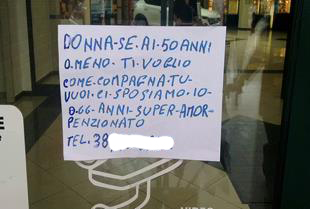 DONNA-SE.AI.50ANNI
O.MENO.TI.VOGLIO
COME.COMPAGNA.TU-
VUOI.CI.SPOSIAMO.IO-
O.66-ANNI-SUPER-AMOR-
PENZIONATO
TEL.38
VIDEO